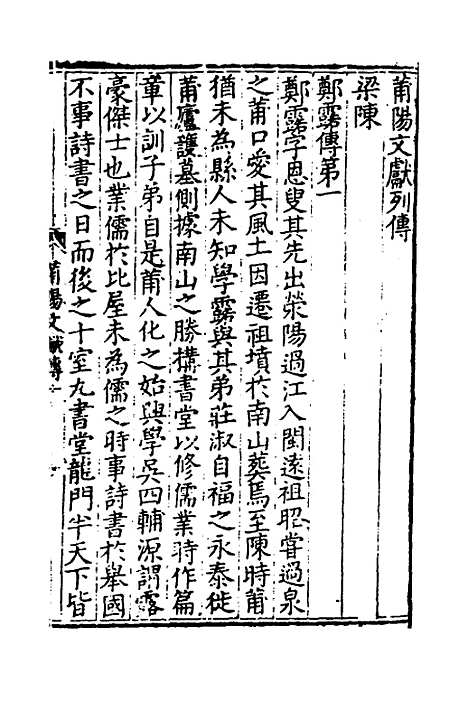 莆陽文獻列傳
梁陳
鄭露傳第一
鄭露字恩叟其先出滎陽過江入閩遠祖昭嘗過泉
之莆口愛其風土因遷祖墳於南山葬焉至陳時莆
猶未為縣人未知學露與其弟莊淑自福之永泰徙
莆廬護墓側據南山之勝搆書堂以修儒業時作篇
章以訓子弟自是莆人化之始興學吳四輔源謂露
豪傑士也業儒於比屋未為儒之時事詩書於舉國
不事詩書之日而後之十室九書堂龍門半天下皆
莆陽文獻傳一